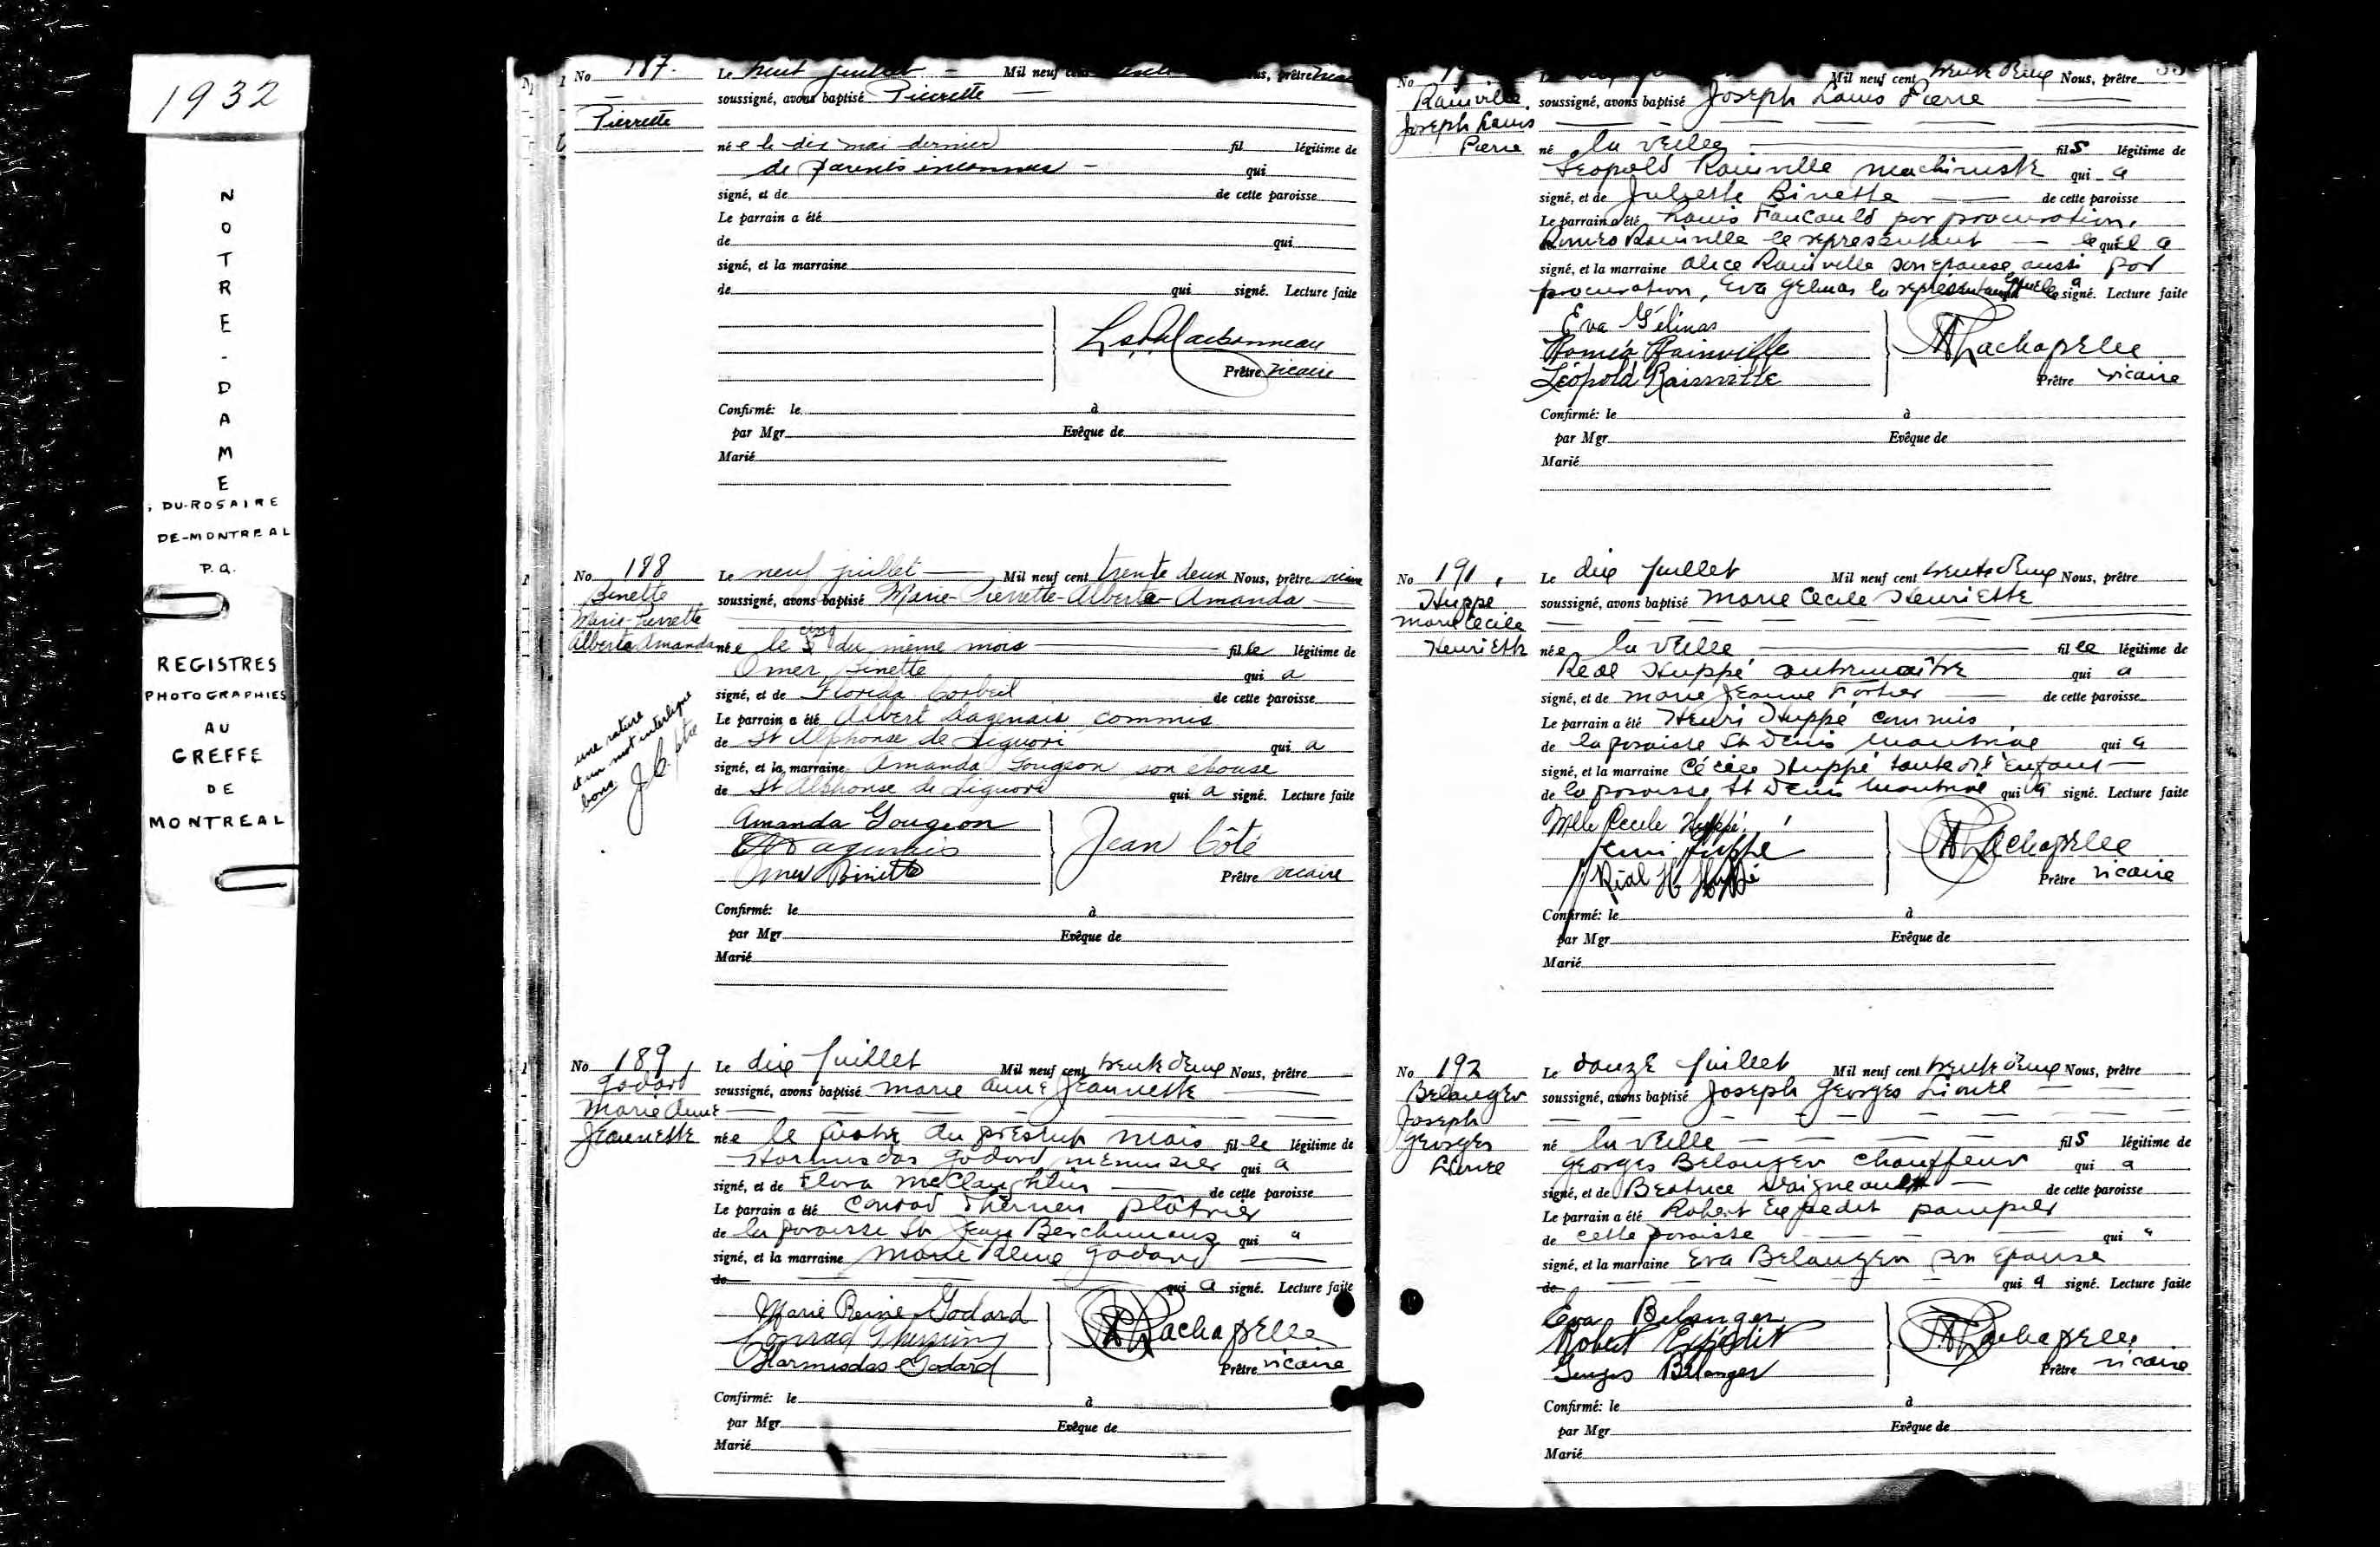 1932
NOTRE-DAME
DU-ROSAIRE
DE-MONTREAL
P.Q.
REGISTRES
PHOTOGRAPHIES
AU
GREFFE
DE
MONTREAL
No 187.
Pierrette
Le neuf juillet — Mil neuf cent Nous, prêtre
soussigné, avons baptisé Pierrette —
née le dix mai dernier fil légitime de
de parents inconnus — qui
signé, et de de cette paroisse
Le parrain a été
de qui
signé, et la marraine
de qui signé. Lecture faite
Prêtre vicaire
Confirmé: le à
par Mgr Evêque de
Marié
No 188
Binette
Marie-Pierrette
Alberte Amanda
Le neuf juillet — Mil neuf cent trente deux Nous, prêtre vicaire
soussigné, avons baptisé Marie-Pierrette-Alberte-Amanda —
cinq
née le du même mois — fille légitime de
Omer Binette qui a
signé, et de Florida Corbeil de cette paroisse
Le parrain a été Albert Dagenais commis
de St Alphonse de Liguori qui a
signé, et la marraine Amanda Gougeon son épouse
de St Alphonse de Liguori qui a signé. Lecture faite
une rature
et un mot interligne
bons
J.C. ptre
Amanda Gougeon
Dagenais
Omer Binette
Jean Côté
Prêtre vicaire
Confirmé: le à
par Mgr Evêque de
Marié
No 189
Godard
Marie Anne
Jeannette
Le dix Juillet Mil neuf cent trente deux Nous, prêtre
soussigné, avons baptisé Marie Anne Jeannette
née le quatre du présent mois fille légitime de
Hormisdas Godard menuisier qui a
signé, et de Flora McClaughlin — de cette paroisse
Le parrain a été Conrad Therrien plâtrier
de la paroisse St Jean Berchmans qui a
signé, et la marraine Marie Reine Godard —
de — qui a signé. Lecture faite
Marie Reine Godard
Conrad Therrien
Hormisdas Godard
Lachapelle
Prêtre vicaire
Confirmé: le à
par Mgr Evêque de
Marié
No
Rainville
Joseph Louis
Pierre
Mil neuf cent trente deux Nous, prêtre
soussigné, avons baptisé Joseph Louis Pierre —
né la veille — fils légitime de
Leopold Rainville machiniste qui a
signé, et de Juliette Binette — de cette paroisse
Le parrain a été Louis Foucauld par procuration,
Romeo Rainville le representant — lequel a
signé, et la marraine Alice Rainville son epouse aussi par
procuration, Eva Gelinas la representant laquelle a signé. Lecture faite
Eva Gélinas
Roméo Rainville
Léopold Rainville
Lachapelle
Prêtre vicaire
Confirmé: le à
par Mgr Evêque de
Marié
No 191
Huppé
Marie Cecile
Henriette
Le dix Juillet Mil neuf cent trente deux Nous, prêtre
soussigné, avons baptisé Marie Cecile Henriette
née la veille — fille légitime de
Real Huppé contremaître qui a
signé, et de Marie Jeanne Fortier — de cette paroisse
Le parrain a été Henri Huppé commis
de la paroisse St Denis Montréal qui a
signé, et la marraine Cécile Huppé tante de l'enfant —
de la paroisse St Denis Montréal qui a signé. Lecture faite
Mlle Cecile Huppé
Henri Huppé
Réal H Huppé
Lachapelle
Prêtre vicaire
Confirmé: le à
par Mgr Evêque de
Marié
No 192
Belanger
Joseph
Georges
Lionel
Le douze Juillet Mil neuf cent trente deux Nous, prêtre
soussigné, avons baptisé Joseph Georges Lionel —
né la veille — fils légitime de
Georges Belanger chauffeur qui a
signé, et de Beatrice Daigneault — de cette paroisse
Le parrain a été Robert Expedit pompier
de cette paroisse — qui a
signé, et la marraine Eva Belanger son epouse
de — qui a signé. Lecture faite
Eva Belanger
Robert Expédit
Georges Bélanger
Lachapelle
Prêtre vicaire
Confirmé: le à
par Mgr Evêque de
Marié